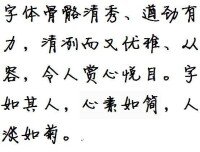 字体骨骼清秀、遒劲有
力，清冽而又优雅、从
容，令人赏心悦目。字
如其人，心素如简，人
淡如菊。